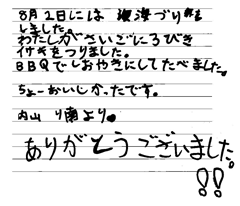 8月2日には 渡海づりも
しました。
わたしがさいごに3びき
イサキをつりました。
BBQでしおやきにしてたべました。
ちょーおいしかったです。
内山 り南より。
ありがとうございました。!!